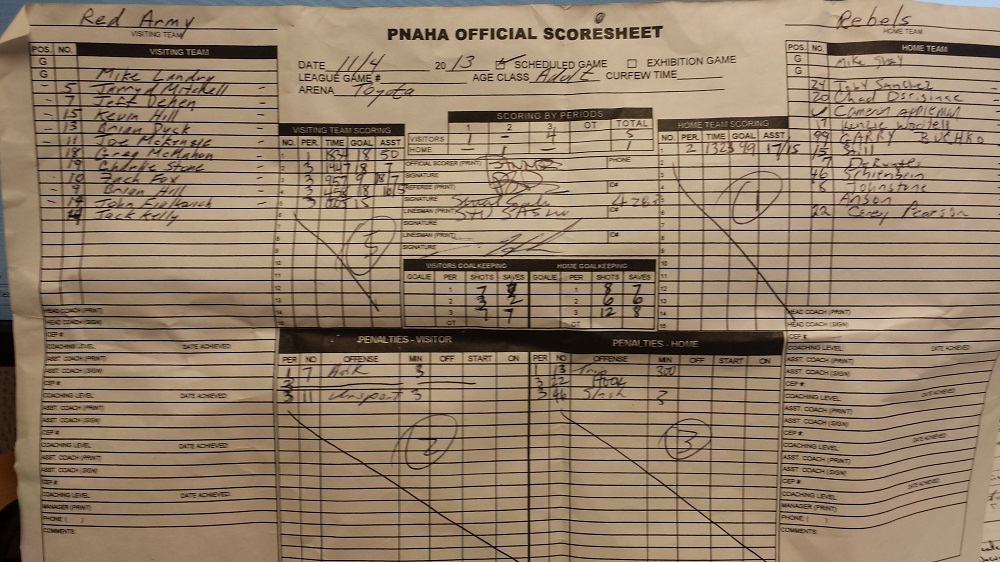 Red Army
VISITING TEAM
PNAHA OFFICIAL SCORESHEET
Rebels
HOME TEAM
DATE 11/4 2013 SCHEDULED GAME EXHIBITION GAME
LEAGUE GAME # AGE CLASS Adult CURFEW TIME
ARENA Toyota
POS. NO. VISITING TEAM
G
G Mike Landry
5 Jarryd Mitchell
7 Jeff Dehen
15 Kevin Hill
13 Brian Dyck
11 Joe McKenzie
18 Greg McMahon
19 Charlie Stone
10 Zach Fox
9 Brian Hill
14 John Fialkovich
Jack Kelly
VISITING TEAM SCORING
NO. PER. TIME GOAL ASST
1 1834 18 50
2 3 1447 18 7
3 3 957 9 18/7
4 3 458 18 10/5
5 3 005 15
5
SCORING BY PERIODS
1 2 3 OT TOTAL
VISITORS 1 - 4 5
HOME - 1 - 1
OFFICIAL SCORER (PRINT) PHONE
SIGNATURE
REFEREE (PRINT) C#
SIGNATURE 4283
LINESMAN (PRINT)
SIGNATURE
LINESMAN (PRINT) C#
SIGNATURE
HOME TEAM SCORING
NO. PER. TIME GOAL ASST
1 2 1323 99 17/15
1
POS. NO. HOME TEAM
G Mike
G
24 Toby Sanchez
20 Chad
99 GARRY BUCHKO
15 Still
7
46
5 Johnstone
Anson
22 Corey Pearson
VISITORS GOALKEEPING
GOALIE PER SHOTS SAVES
1 7
2 3 2
3 7 7
OT
HOME GOALKEEPING
GOALIE PER SHOTS SAVES
1 8 7
2 6 6
3 12 8
OT
PENALTIES - VISITOR
PER NO OFFENSE MIN OFF START ON
1 7 Hook 3
3 11 Unsport 3
2
PENALTIES - HOME
PER NO OFFENSE MIN OFF START ON
1 13 Trip 300
3 22 Hook
3 46 Slash 3
3
HEAD COACH (PRINT)
HEAD COACH (SIGN)
CEP #
COACHING LEVEL DATE ACHIEVED
ASST. COACH (PRINT)
ASST. COACH (SIGN)
CEP #
COACHING LEVEL DATE ACHIEVED
ASST. COACH (PRINT)
CEP #
COACHING LEVEL DATE ACHIEVED
ASST. COACH (SIGN)
ASST. COACH (SIGN)
CEP #
COACHING LEVEL DATE ACHIEVED
MANAGER (PRINT)
PHONE ( )
COMMENTS:
HEAD COACH (PRINT)
HEAD COACH (SIGN)
CEP #
COACHING LEVEL DATE ACHIEVED
ASST. COACH (PRINT)
ASST. COACH (SIGN)
CEP #
COACHING LEVEL DATE ACHIEVED
ASST. COACH (PRINT)
ASST. COACH (SIGN)
CEP #
COACHING LEVEL DATE ACHIEVED
ASST. COACH (PRINT)
ASST. COACH (SIGN)
CEP #
COACHING LEVEL DATE ACHIEVED
MANAGER (PRINT)
PHONE ( )
COMMENTS: